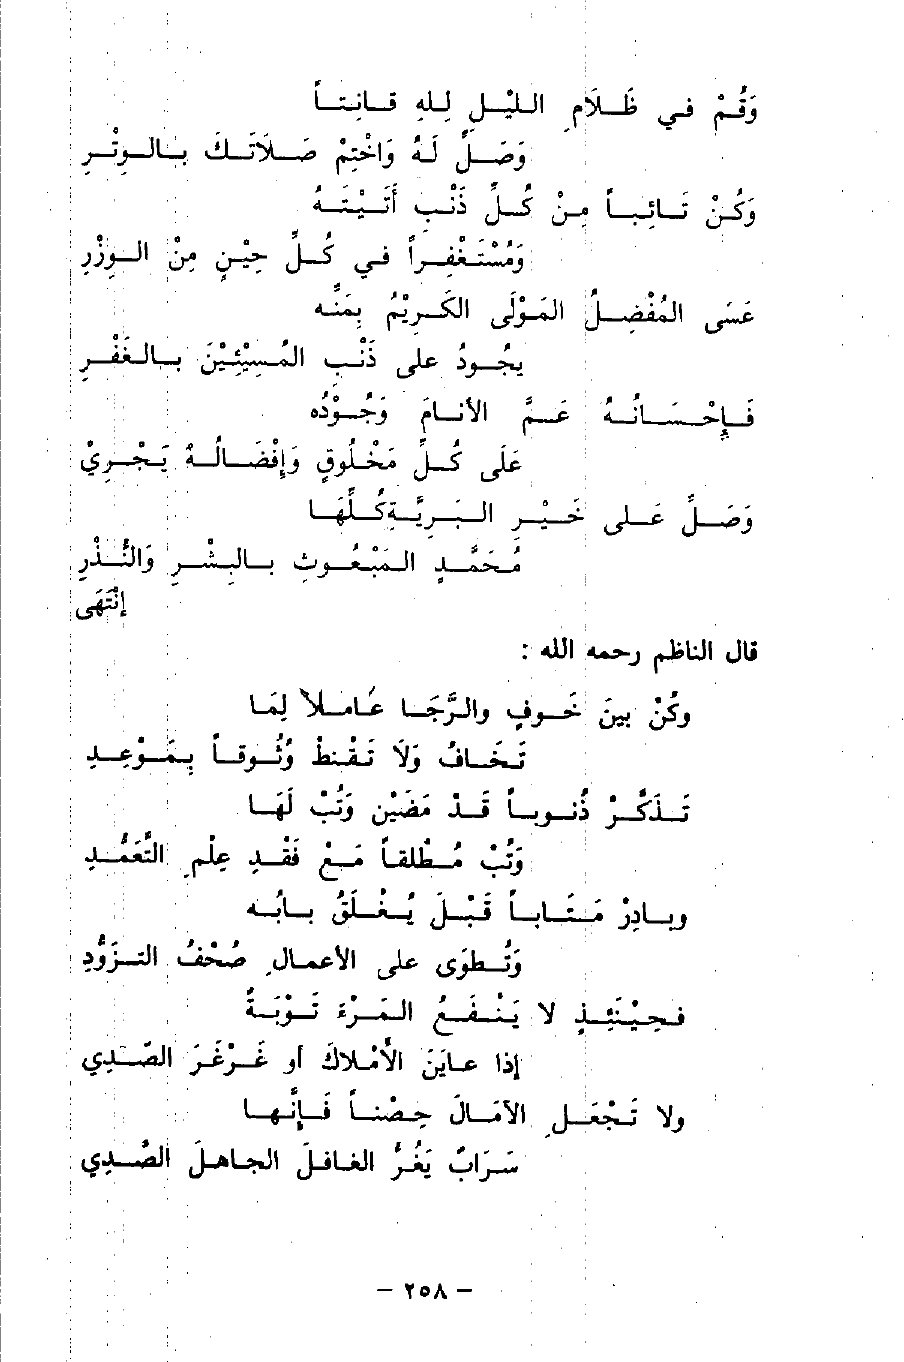 وَقُمْ في ظَلَامِ الليْلِ لِلهِ قانِتاً
وَصَلِّ لَهُ وَاخْتِمْ صَلَاتَكَ بالوِتْرِ
وَكُنْ تَائِباً مِنْ كُلِّ ذَنْبٍ أَتَيْتَهُ
وَمُسْتَغْفِراً في كُلِّ حِيْنٍ مِنْ الوِزْرِ
عَسَى المُفْضِلُ المَوْلَى الكَرِيْمُ بِمَنِّه
يجُودُ على ذَنْبِ المُسِيْئِيْنَ بالغَفْرِ
فَإِحْسَانُهُ عَمَّ الأنامَ وَجُوْدُه
عَلَى كُلِّ مَخْلُوقٍ وَإِفْضَالُهُ يَجْرِيْ
وَصَلِّ عَلى خَيْرِ البَرِيَّةِ كُلِّهَا
مُحَمَّدٍ المَبْعُوثِ بالبِشْرِ وَالنُّذْرِ
إنْتَهَى
قال الناظم رحمه الله :
وكُنْ بينَ خَوفٍ والرَّجَا عَاملاً لِمَا
تَخَافُ وَلَا تَقْنطْ وُثُوقاً بِمَوْعِدِ
تَذكَّرْ ذُنوباً قَدْ مَضَيْن وَتُبْ لَهَا
وَتُبْ مُطْلقاً مَعْ فَقْدِ عِلْمِ التَّعَمُّدِ
وبادِرْ مَتَاباً قَبْلَ يُغْلَقُ بابُه
وَتُطوَى على الأعمالِ صُحْفُ التزَوُّدِ
فحِيْنَئِذٍ لا يَنْفَعُ المَرْءَ تَوْبَةٌ
إذا عايَنَ الأمْلاكَ أو غَرْغَرَ الصَّدِي
ولا تَجْعَلِ الآمَالَ حِصْناً فَإِنَّها
سَرَابٌ يَغُرُّ الغافلَ الجاهلَ الصَّدِي
– ٢٥٨ –